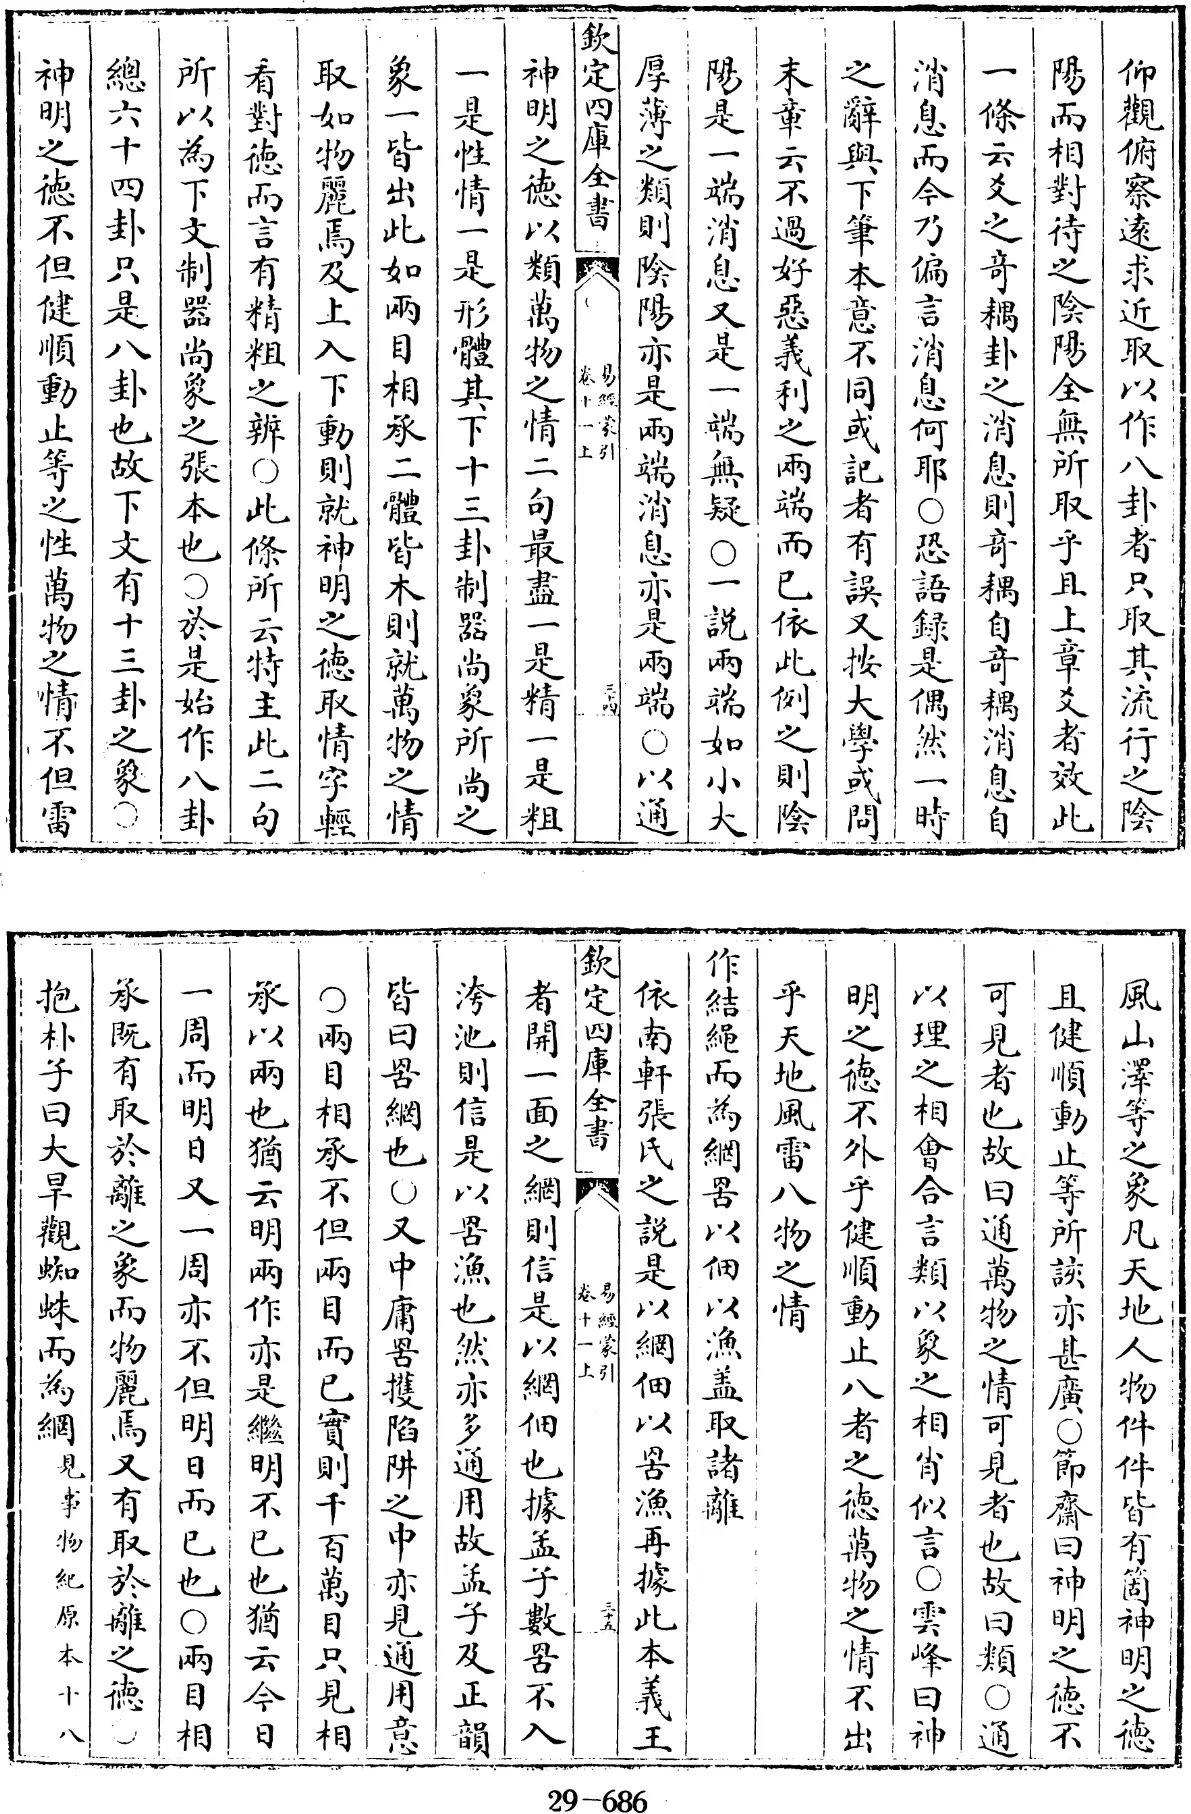 仰觀俯察遠求近取以作八卦者只取其流行之陰
陽而相對待之陰陽全無所取乎且上章爻者效此
一條云爻之奇耦卦之消息則奇耦自奇耦消息自
消息而今乃偏言消息何耶○恐語錄是偶然一時
之辭與下筆本意不同或記者有誤又按大學或問
末章云不過好惡義利之兩端而已依此例之則陰
陽是一端消息又是一端無疑○一說兩端如小大
厚薄之類則陰陽亦是兩端消息亦是兩端○以通
欽定四庫全書
易經蒙引
卷十一上
三十四
神明之德以類萬物之情二句最盡一是精一是粗
一是性情一是形體其下十三卦制器尚象所尚之
象一皆出此如兩目相承二體皆木則就萬物之情
取如物麗焉及上入下動則就神明之德取情字輕
看對德而言有精粗之辨○此條所云特主此二句
所以為下文制器尚象之張本也○於是始作八卦
總六十四卦只是八卦也故下文有十三卦之象○
神明之德不但健順動止等之性萬物之情不但雷
風山澤等之象凡天地人物件件皆有箇神明之德
且健順動止等所該亦甚廣○節齋曰神明之德不
可見者也故曰通萬物之情可見者也故曰類○通
以理之相會合言類以象之相肖似言○雲峰曰神
明之德不外乎健順動止八者之德萬物之情不出
乎天地風雷八物之情
作結繩而為網罟以佃以漁蓋取諸離
依南軒張氏之說是以網佃以罟漁再據此本義王
欽定四庫全書
易經蒙引
卷十一上
三十五
者開一面之網則信是以網佃也據孟子數罟不入
洿池則信是以罟漁也然亦多通用故孟子及正韻
皆曰罟網也○又中庸罟擭陷阱之中亦見通用意
○兩目相承不但兩目而已實則千百萬目只見相
承以兩也猶云明兩作亦是繼明不已也猶云今日
一周而明日又一周亦不但明日而已也○兩目相
承既有取於離之象而物麗焉又有取於離之德○
抱朴子曰大旱觀蜘蛛而為網見事物紀原本十八
29-686